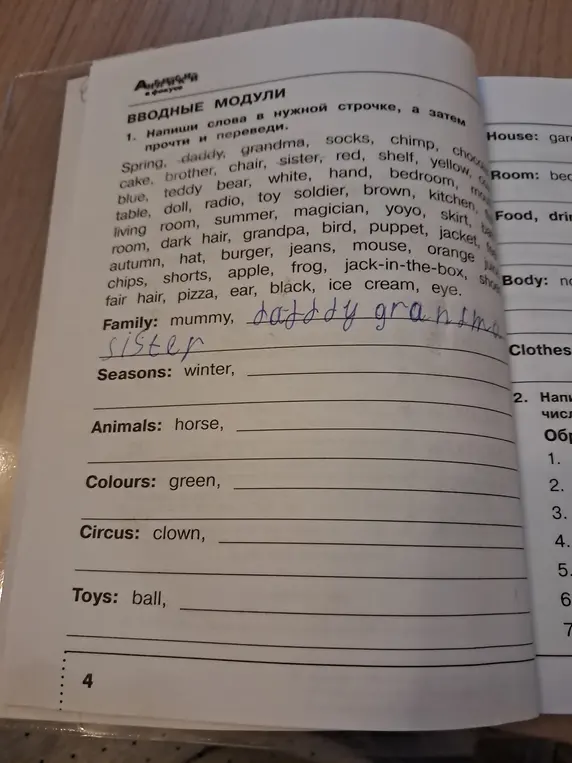 Английский
в фокусе
ВВОДНЫЕ МОДУЛИ
1. Напиши слова в нужной строчке, а затем
прочти и переведи.
Spring, daddy, grandma, socks, chimp,
cake, brother, chair, sister, red, shelf, yellow,
blue, teddy bear, white, hand, bedroom,
table, doll, radio, toy soldier, brown, kitchen,
living room, summer, magician, yoyo, skirt,
room, dark hair, grandpa, bird, puppet, jacket,
autumn, hat, burger, jeans, mouse, orange
chips, shorts, apple, frog, jack-in-the-box,
fair hair, pizza, ear, black, ice cream, eye.
Family: mummy, dadddy grandma
sister
Seasons: winter,
Animals: horse,
Colours: green,
Circus: clown,
Toys: ball,
4
House:
Room:
Food,
Body:
Clothes
2.
1.
2.
3.
4.
5.
6
7